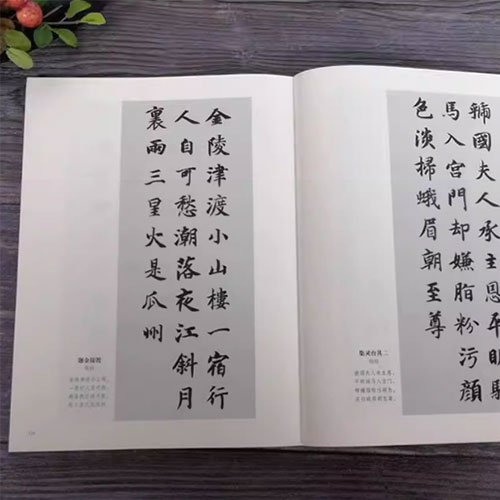 金陵津渡小山樓一宿行
人自可愁潮落夜江斜月
裏兩三星火是瓜州
題金陵渡
國夫人承主恩平明騎
馬入宮門却嫌脂粉污顏
色淡掃蛾眉朝至尊
集灵台其二